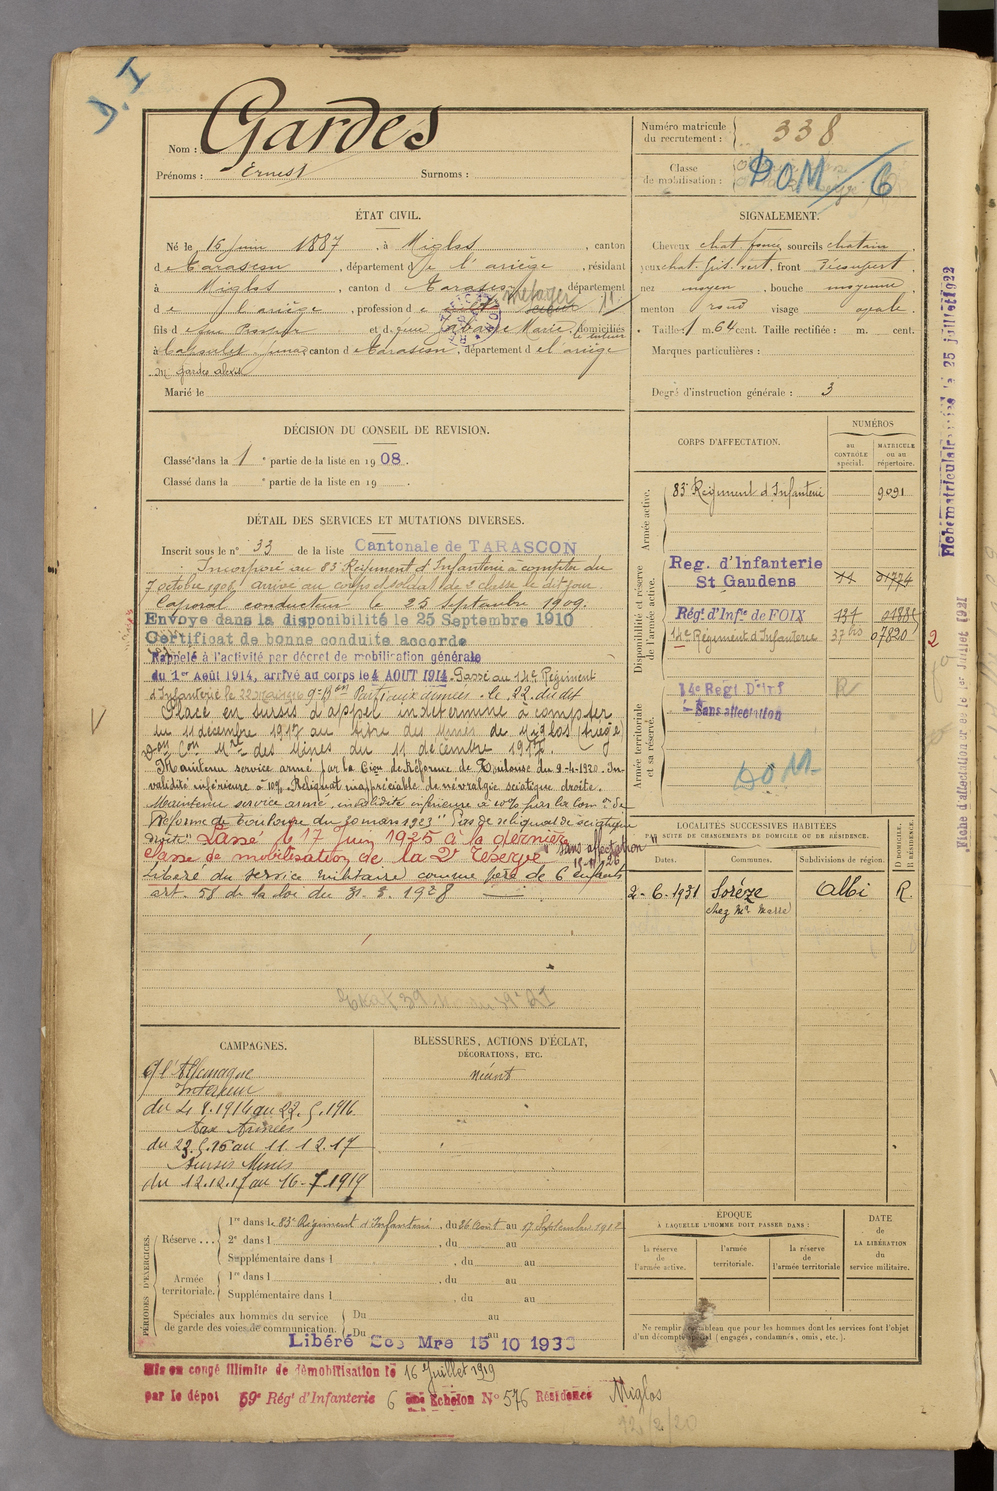 D.I
Nom : Gardes
Prénoms : Ernest Surnoms :
Numéro matricule du recrutement : 338
Classe de mobilisation : DOM / 6
ÉTAT CIVIL.
Né le 15 Juin 1887, à Miglos, canton
de Tarascon, département de l'ariège, résidant
à Miglos, canton d Tarascon département
de l'ariège, profession de métayer
fils de feu et de Marie, domiciliés
à canton de Tarascon, département de l'ariège
Marié le
SIGNALEMENT.
Cheveux chat. foncé sourcils chatain
yeux chat. gris vert, front Découvert
nez moyen, bouche moyenne
menton rond visage ovale
Taille : 1 m. 64 cent. Taille rectifiée : m. cent.
Marques particulières :
Degré d'instruction générale : 3
DÉCISION DU CONSEIL DE REVISION.
Classé dans la 1e partie de la liste en 1908.
Classé dans la e partie de la liste en 19 .
DÉTAIL DES SERVICES ET MUTATIONS DIVERSES.
Inscrit sous le n° 33 de la liste Cantonale de TARASCON
Incorporé au 83e Régiment d'Infanterie à compter du
7 octobre 1908 arrivé au corps et soldat de 2e classe le dit jour
Caporal conducteur le 25 septembre 1909.
Envoyé dans la disponibilité le 25 Septembre 1910
Certificat de bonne conduite accordé
Rappelé à l'activité par décret de mobilisation générale
du 1er Août 1914, arrivé au corps le 4 AOUT 1914. Passé au 14e Régiment
d'Infanterie le 22 Parti aux armées le 22 du dit
Placé en sursis d'appel indéterminé à compter
du 11 décembre 1917 au titre des Mines de Miglos (Ariège)
des Mines du 11 décembre 1917.
Maintenu service armé par la Con de Réforme de Toulouse du 9-4-1920. In-
validité inférieure à 10%. Reliquat inappréciable de névralgie sciatique droite.
Maintenu service armé, invalidité inférieure à 10% par la Com. de
Réforme de Toulouse du 30 mars 1923 "Pas de reliquat de sciatique
droite" Passé le 17 Juin 1925 à la dernière
classe de mobilisation de la 2e réserve "sans affectation"
Libéré du service militaire comme père de 6 enfants
art. 58 de la loi du 31.3.1928
CORPS D'AFFECTATION.
NUMÉROS
au CONTRÔLE spécial.
MATRICULE ou au répertoire.
Armée active.
83e Régiment d'Infanterie 9091
Disponibilité et réserve de l'armée active.
Reg. d'Infanterie
St Gaudens 01774
Régt d'Infie de FOIX 134
14e Régiment d'Infanterie 37 bis 07820
2
Armée territoriale et sa réserve.
14e Regt D'Inf R
Sans affectation
DOM-
LOCALITÉS SUCCESSIVES HABITÉES
PAR SUITE DE CHANGEMENTS DE DOMICILE OU DE RÉSIDENCE.
Dates. Communes. Subdivisions de région. D DOMICILE. R RÉSIDENCE.
2-6-1931 Sorèze Albi R.
chez Mr
CAMPAGNES.
C/ l'Allemagne
Intérieur
du 4.8.1914 au 22.5.1916.
Aux Armées
du 23.5.16 au 11.12.17
Sursis Mines
du 12.12.17 au 16-7-1919
BLESSURES, ACTIONS D'ÉCLAT,
DÉCORATIONS, ETC.
néant
PÉRIODES D'EXERCICES.
Réserve... 1re dans le 83e Régiment d'Infanterie, du 26 Août au 17 Septembre 1912
2e dans l , du au
Supplémentaire dans l , du au
Armée territoriale. 1re dans l , du au
Supplémentaire dans l , du au
Spéciales aux hommes du service Du au
de garde des voies de communication. Du au
Libéré Sce Mre 15 10 1933
ÉPOQUE
A LAQUELLE L'HOMME DOIT PASSER DANS :
la réserve de l'armée active.
l'armée territoriale.
la réserve de l'armée territoriale
DATE de LA LIBÉRATION du service militaire.
Ne remplir ce tableau que pour les hommes dont les services font l'objet
d'un décompte spécial (engagés, condamnés, omis, etc.).
Mis en congé illimité de démobilisation le 16 Juillet 1919
par le dépot 59e Régt d'Infanterie 6 Echelon N° 576 Résidence Miglos
12/2/20
Fiche matriculaire le 25 juillet 1922
Fiche d'affectation le 1er juillet 1921